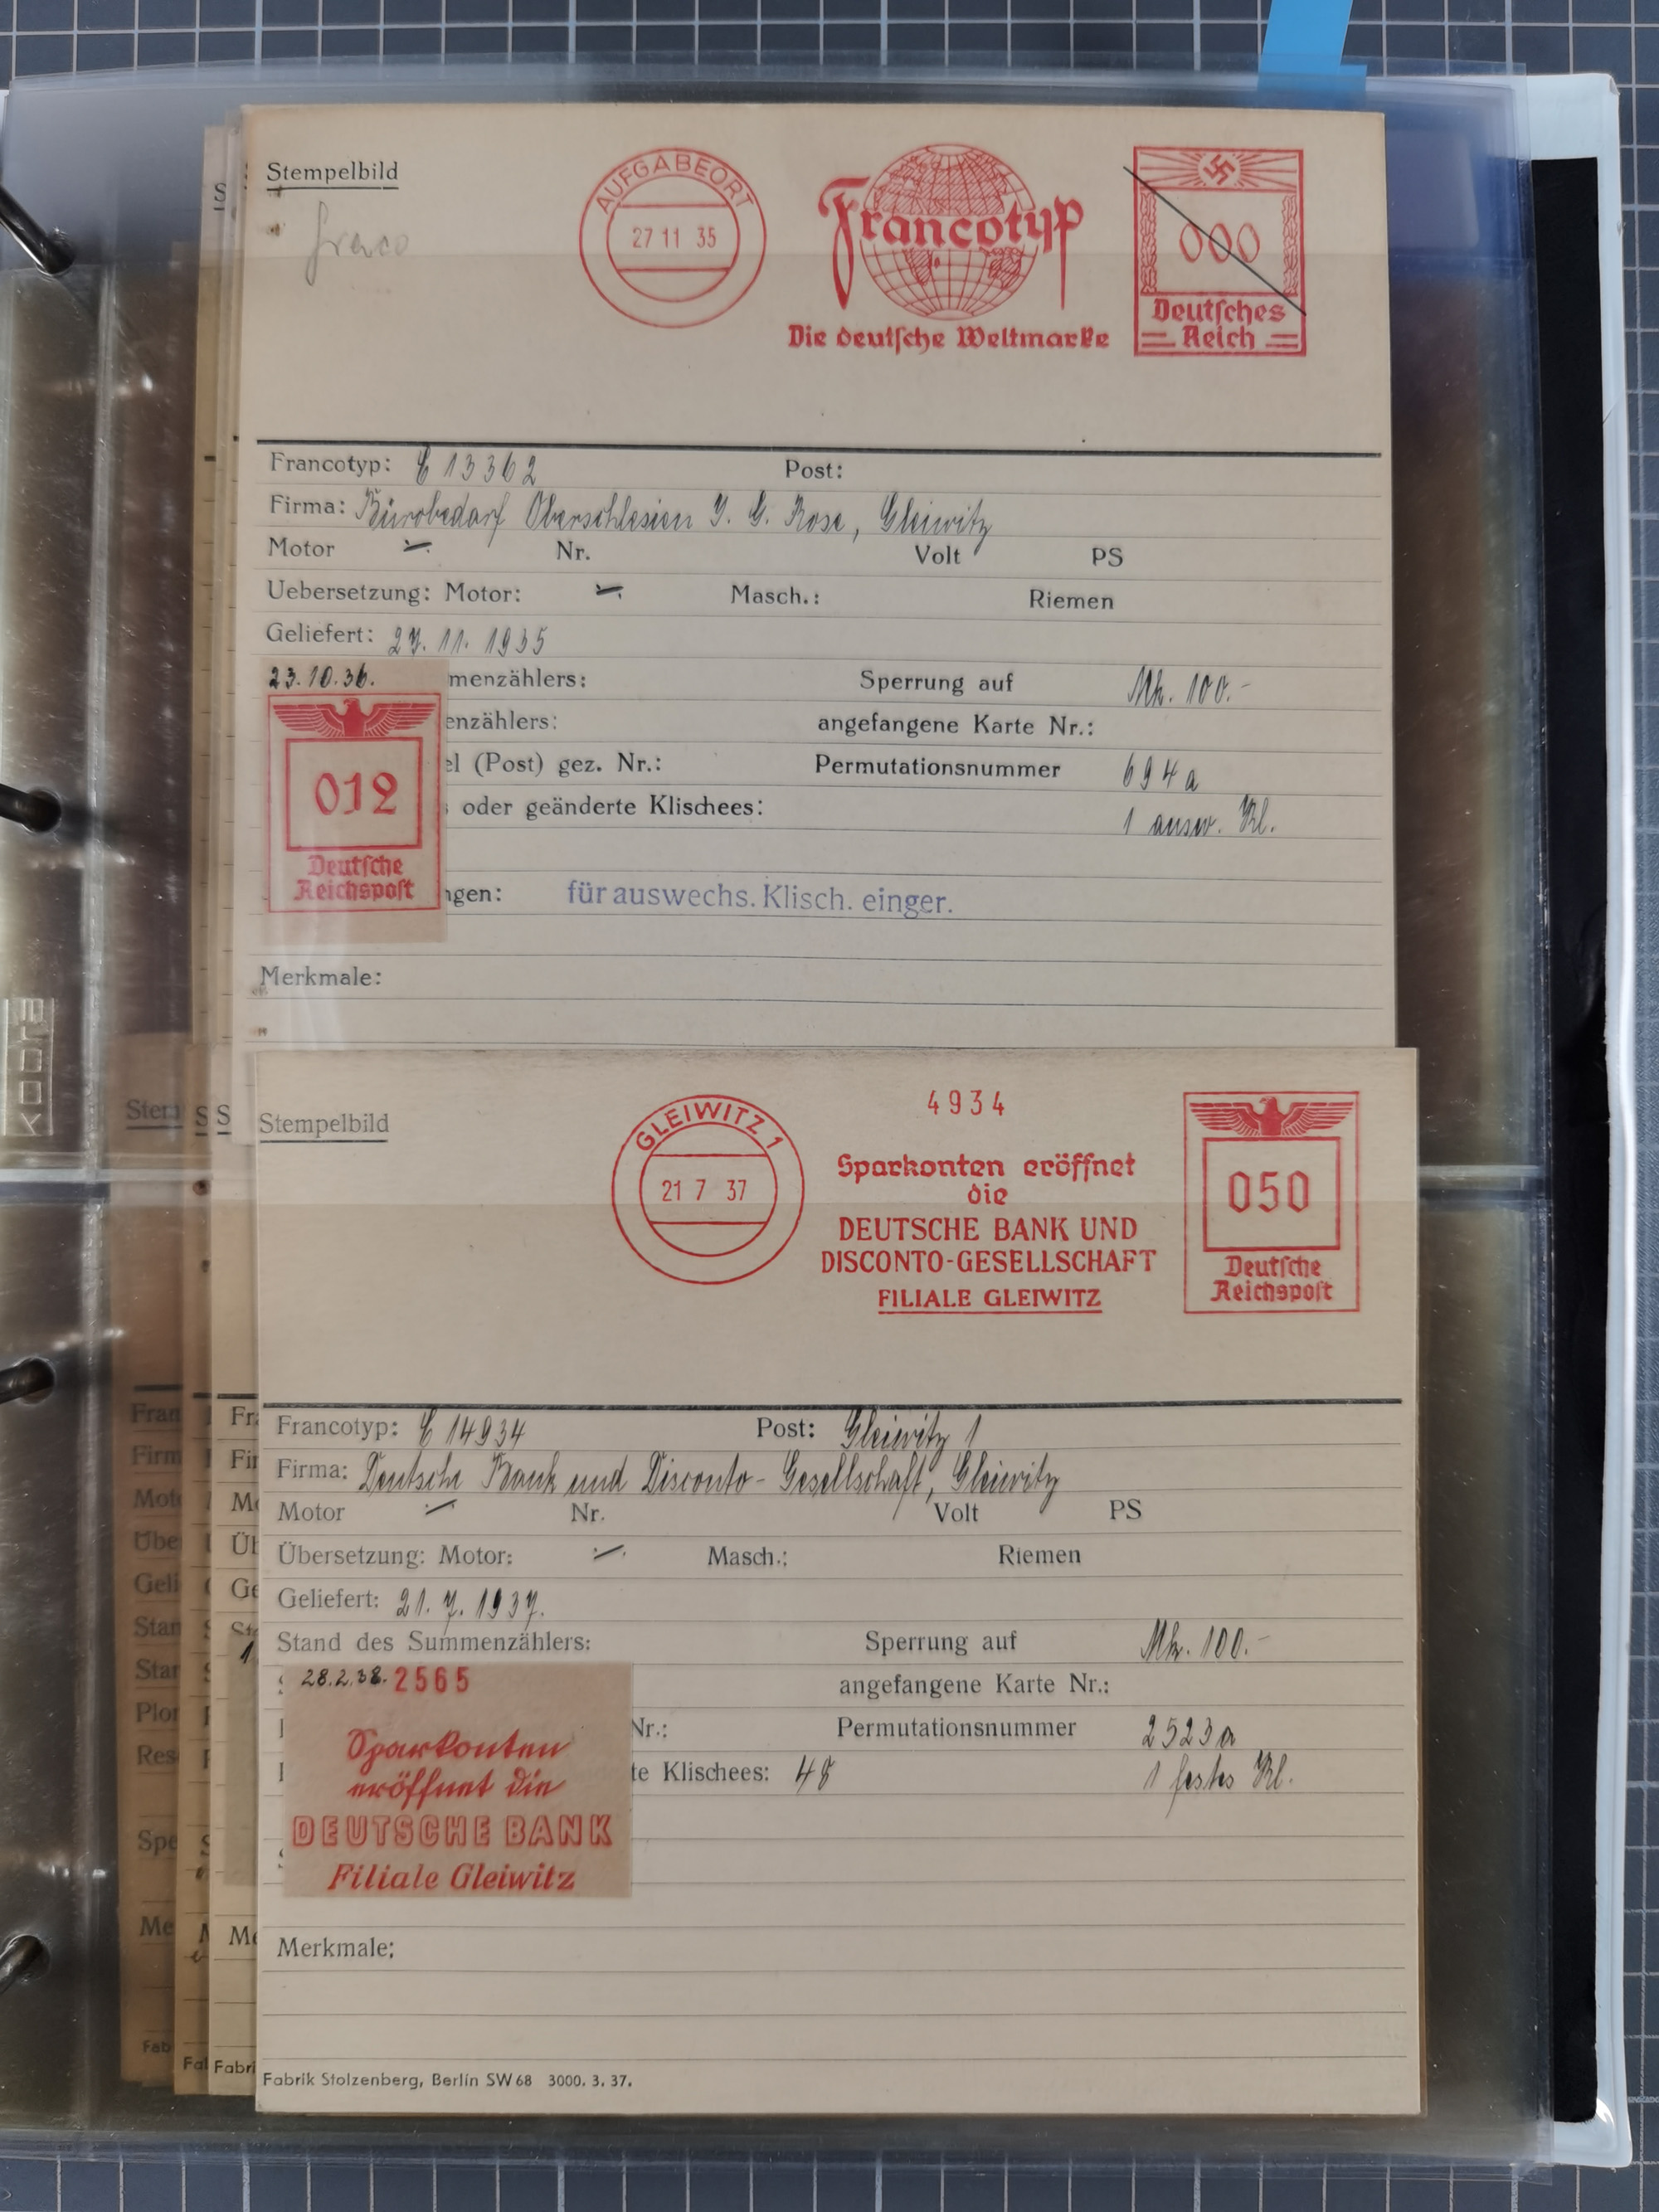 Stempelbild
AUFGABEORT
27 11 35
Francotyp
Die deutsche Weltmarke
000
Deutsches
Reich
Francotyp: C 13362 Post:
Firma: Bürobedarf Oberschlesien J. G. Rose, Gleiwitz
Motor Nr. Volt PS
Uebersetzung: Motor: Masch.: Riemen
Geliefert: 27. 11. 1935
23.10.36. menzählers: Sperrung auf Mk. 100.-
enzählers: angefangene Karte Nr.:
012
el (Post) gez. Nr.: Permutationsnummer 694a
oder geänderte Klischees: 1 ausw. Kl.
Deutsche
Reichspost
ngen: für auswechs. Klisch. einger.
Merkmale:
Stempelbild
GLEIWITZ 1
21 7 37
4934
Sparkonten eröffnet
die
DEUTSCHE BANK UND
DISCONTO-GESELLSCHAFT
FILIALE GLEIWITZ
050
Deutsche
Reichspost
Francotyp: C 14934 Post: Gleiwitz 1
Firma: Deutsche Bank und Disconto-Gesellschaft, Gleiwitz
Motor Nr. Volt PS
Übersetzung: Motor: Masch.: Riemen
Geliefert: 21. 7. 1937.
Stand des Summenzählers: Sperrung auf Mk. 100.-
28.2.38. 2565 angefangene Karte Nr.:
Nr.: Permutationsnummer 2523a
te Klischees: 48 1 festes Kl.
Sparkonten
eröffnet die
DEUTSCHE BANK
Filiale Gleiwitz
Merkmale:
Fabrik Stolzenberg, Berlin SW 68 3000. 3. 37.